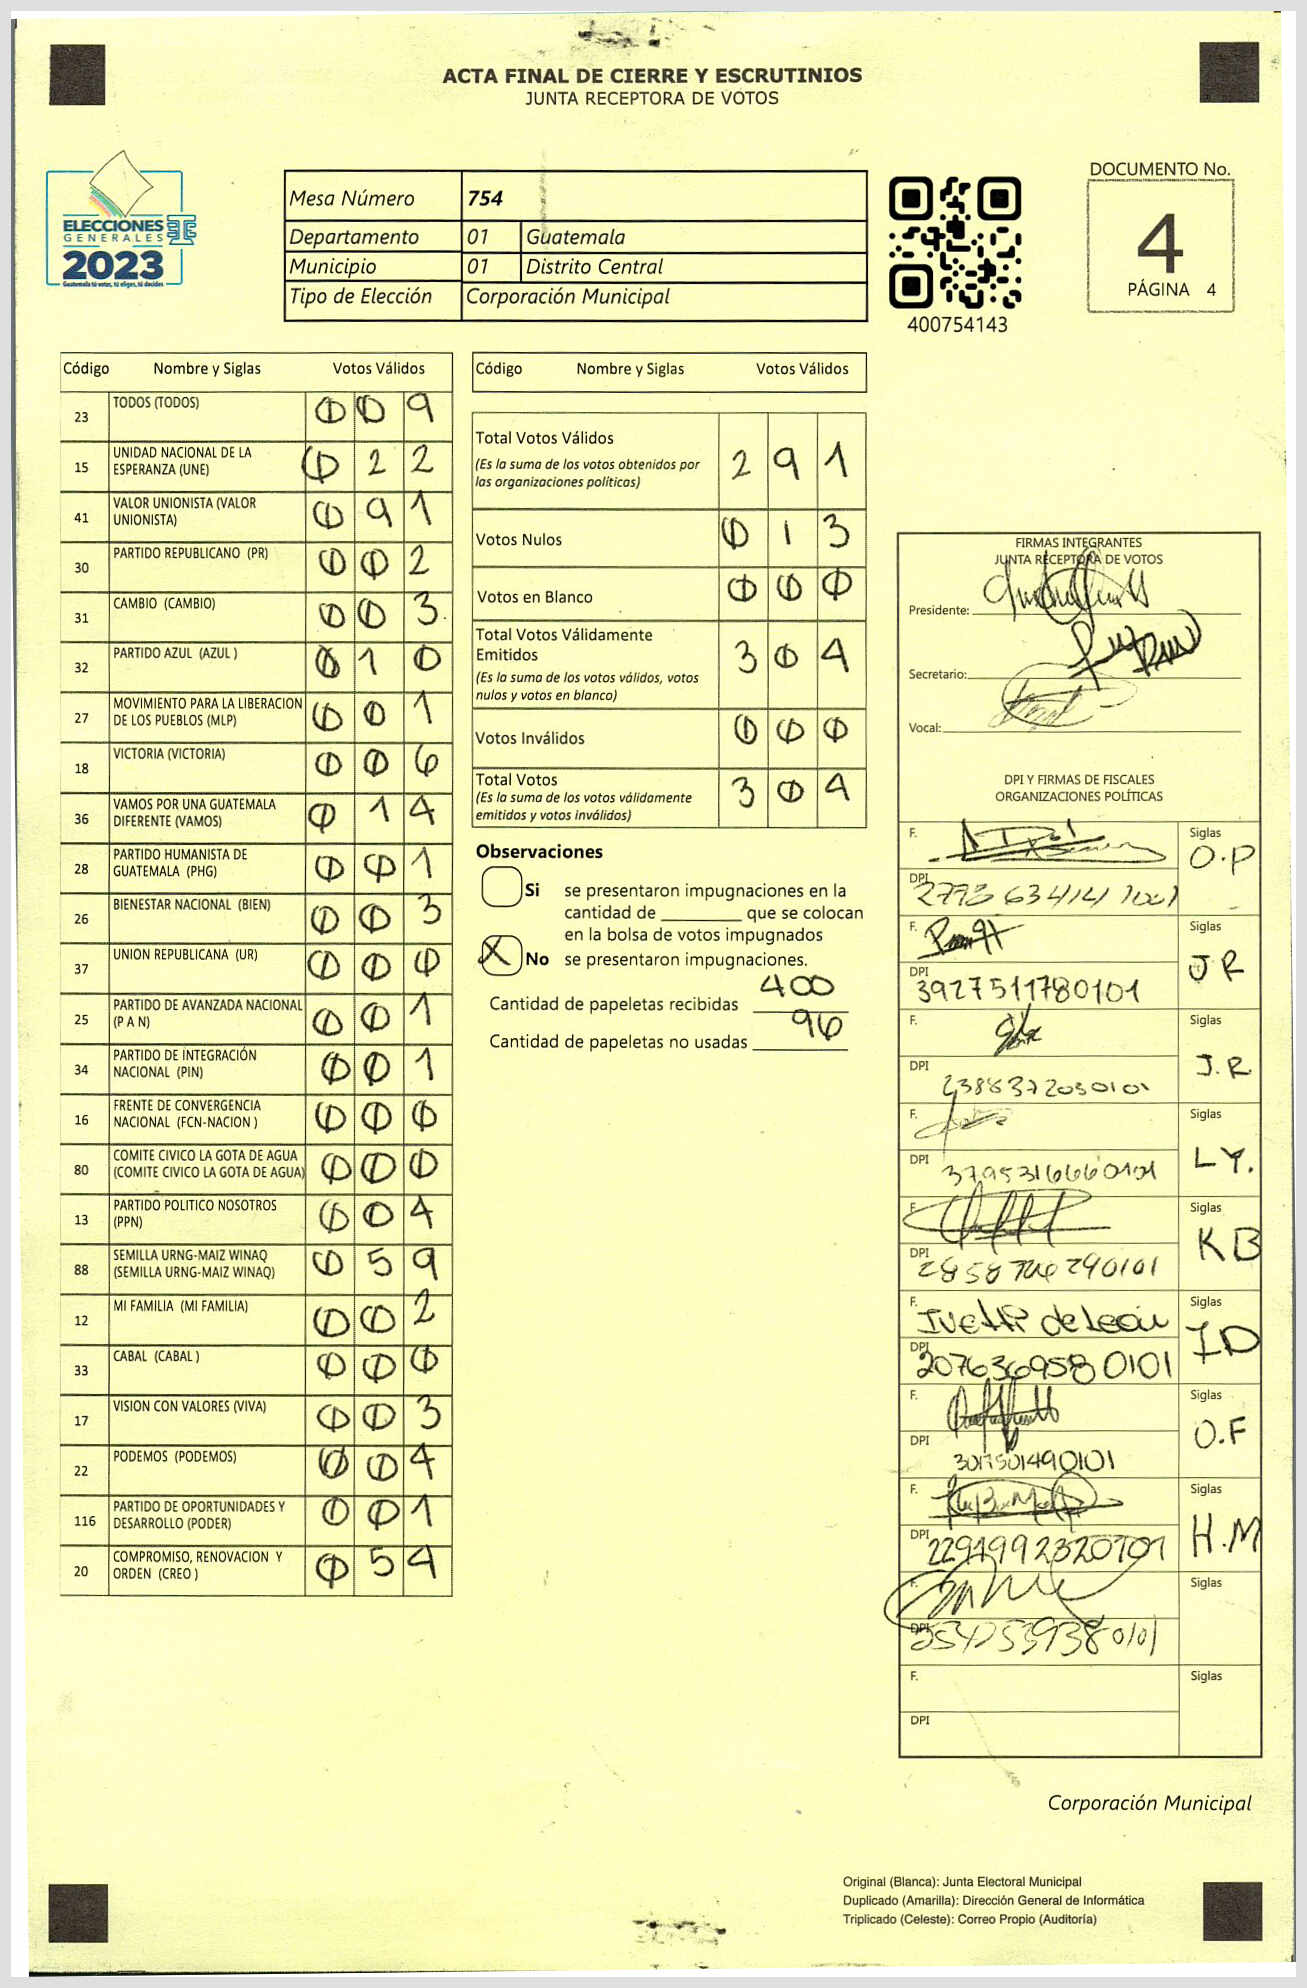 ACTA FINAL DE CIERRE Y ESCRUTINIOS
JUNTA RECEPTORA DE VOTOS
ELECCIONES
GENERALES
2023
Guatemala tú votas, tú eliges, tú decides
Mesa Número 754
Departamento 01 Guatemala
Municipio 01 Distrito Central
Tipo de Elección Corporación Municipal
400754143
DOCUMENTO No.
4
PÁGINA 4
Código Nombre y Siglas Votos Válidos
23 TODOS (TODOS) 0 0 9
15 UNIDAD NACIONAL DE LA ESPERANZA (UNE) 0 2 2
41 VALOR UNIONISTA (VALOR UNIONISTA) 0 9 1
30 PARTIDO REPUBLICANO (PR) 0 0 2
31 CAMBIO (CAMBIO) 0 0 3
32 PARTIDO AZUL (AZUL ) 0 1 0
27 MOVIMIENTO PARA LA LIBERACION DE LOS PUEBLOS (MLP) 0 0 1
18 VICTORIA (VICTORIA) 0 0 6
36 VAMOS POR UNA GUATEMALA DIFERENTE (VAMOS) 0 1 4
28 PARTIDO HUMANISTA DE GUATEMALA (PHG) 0 0 1
26 BIENESTAR NACIONAL (BIEN) 0 0 3
37 UNION REPUBLICANA (UR) 0 0 0
25 PARTIDO DE AVANZADA NACIONAL (P A N) 0 0 1
34 PARTIDO DE INTEGRACIÓN NACIONAL (PIN) 0 0 1
16 FRENTE DE CONVERGENCIA NACIONAL (FCN-NACION ) 0 0 0
80 COMITE CIVICO LA GOTA DE AGUA (COMITE CIVICO LA GOTA DE AGUA) 0 0 0
13 PARTIDO POLITICO NOSOTROS (PPN) 0 0 4
88 SEMILLA URNG-MAIZ WINAQ (SEMILLA URNG-MAIZ WINAQ) 0 5 9
12 MI FAMILIA (MI FAMILIA) 0 0 2
33 CABAL (CABAL ) 0 0 0
17 VISION CON VALORES (VIVA) 0 0 3
22 PODEMOS (PODEMOS) 0 0 4
116 PARTIDO DE OPORTUNIDADES Y DESARROLLO (PODER) 0 0 1
20 COMPROMISO, RENOVACION Y ORDEN (CREO ) 0 5 4
Código Nombre y Siglas Votos Válidos
Total Votos Válidos 2 9 1
(Es la suma de los votos obtenidos por
las organizaciones políticas)
Votos Nulos 0 1 3
Votos en Blanco 0 0 0
Total Votos Válidamente
Emitidos 3 0 4
(Es la suma de los votos válidos, votos
nulos y votos en blanco)
Votos Inválidos 0 0 0
Total Votos 3 0 4
(Es la suma de los votos válidamente
emitidos y votos inválidos)
Observaciones
Si se presentaron impugnaciones en la
cantidad de ________ que se colocan
en la bolsa de votos impugnados
X No se presentaron impugnaciones.
Cantidad de papeletas recibidas 400
Cantidad de papeletas no usadas 96
FIRMAS INTEGRANTES
JUNTA RECEPTORA DE VOTOS
Presidente:
Secretario:
Vocal:
DPI Y FIRMAS DE FISCALES
ORGANIZACIONES POLÍTICAS
F. Siglas O.P
DPI
F. Siglas J R
DPI 3927511780101
F. Siglas J.R.
DPI 2388372030101
F. Siglas L Y.
DPI 3795316660101
F. Siglas K B
DPI
F. Ivetth de León Siglas I D
DPI 2076369580101
F. Siglas O.F
DPI 3017501490101
F. Siglas H.M
DPI
F. Siglas
DPI
F. Siglas
DPI
Corporación Municipal
Original (Blanca): Junta Electoral Municipal
Duplicado (Amarilla): Dirección General de Informática
Triplicado (Celeste): Correo Propio (Auditoría)